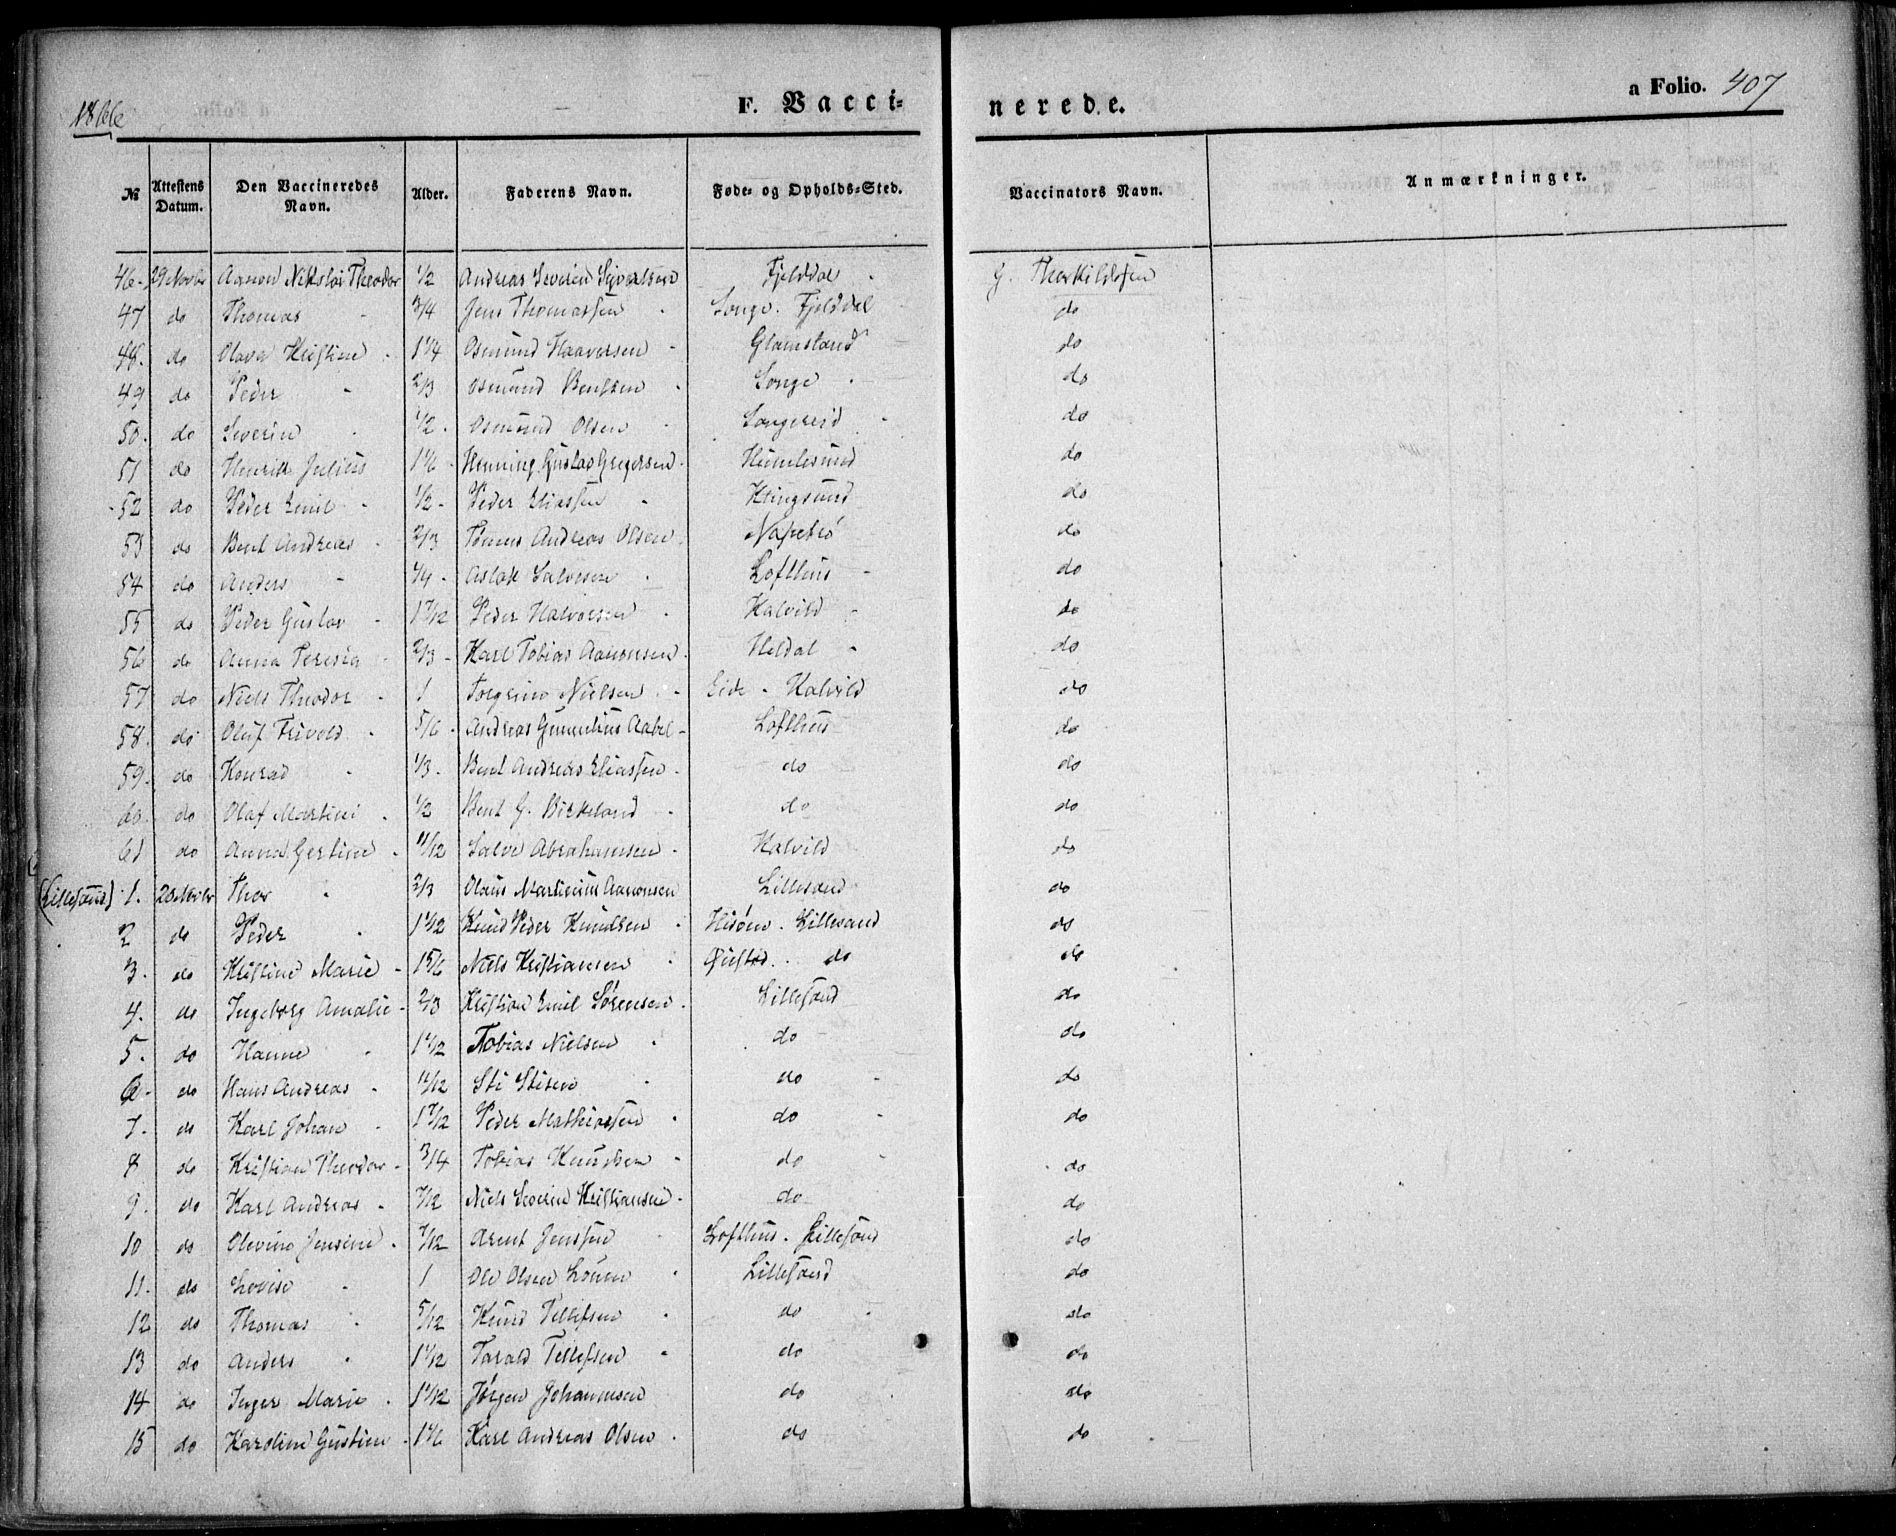 1866
F. Vacci=
nerede.
a Folio. 407
№ Attestens Datum. Den Vaccineredes Navn. Alder. Faderens Navn. Føde- og Opholds-Sted. Vaccinators Navn. Anmærkninger.
46. 29 Novbr Aanon Nikolai Theodor 1/2 Andreas Severin Syvertsen Fjelddal G. Therkildsen
47 do Thomas 3/4 Jens Thomassen Songe. Fjelddal do
48. do Olava Kristine 1 1/4 Osmund Haaversen Glamsland do
49 do Peder 2/3 Osmund Bentsen Songe do
50. do Severin 1/2 Osmund Olsen Songereid do
51 do Henrik Julius 1 1/6 Henning Gustav Gregersen Humlesund do
52 do Peder Emil 1/2 Peder Eliassen Ktingsund do
53 do Bent Andreas 2/3 Tønnes Andreas Olsen do
54 do Anders 1/4 Aslak Salvesen Lofthus do
55 do Peder Gustav 1 7/12 Peder Halvorsen Kalvild do
56 do Anna Teresia 2/3 Karl Tobias Aanonsen Heldal do
57 do Niels Theodor 1 Torgrim Nielsen Eide. Kalvild do
58 do Oluf Trivold 5/6 Andreas Gunnelius Aabel Lofthus do
59. do Konrad 1/3 Bent Andreas Eliassen do do
60 do Olaf Martini 1/2 Bent G. Birkeland do do
61 do Anna Gertine 11/12 Salve Abrahamsen Kalvild do
(Lillesand) 1. 20 Novbr Thor 2/3 Olaus Martinius Aanonsen Lillesand do
2 do Peder 1 1/12 Knud Peder Knudsen Hisøen. Lillesand do
3. do Kristine Marie 1 5/6 Niels Kristiansen Øiestad. do do
4. do Ingeborg Amalie 2/3 Kristian Emil Sørensen Lillesand do
5. do Hanne 1 1/12 Tobias Nielsen do do
6. do Hans Andreas 11/12 Sti Stisen do do
7. do Karl Johan 1 7/12 Peder Mathiassen do do
8 do Kristian Theodor 3/4 Tobias Knudsen do do
9. do Karl Andreas 7/12 Niels Severin Kristiansen do do
10 do Olevine Jensine 7/12 Arent Jenssen Lofthus. Lillesand do
11. do Lovise 1 Ole Olsen Lillesand do
12 do Thomas 5/12 Knud Tellefsen do do
13 do Anders 1 1/12 Tarald Tellefsen do do
14 do Inger Marie 1 1/12 Jørgen Johannesen do do
15 do Karoline Gustine 1 1/6 Karl Andreas Olsen do do